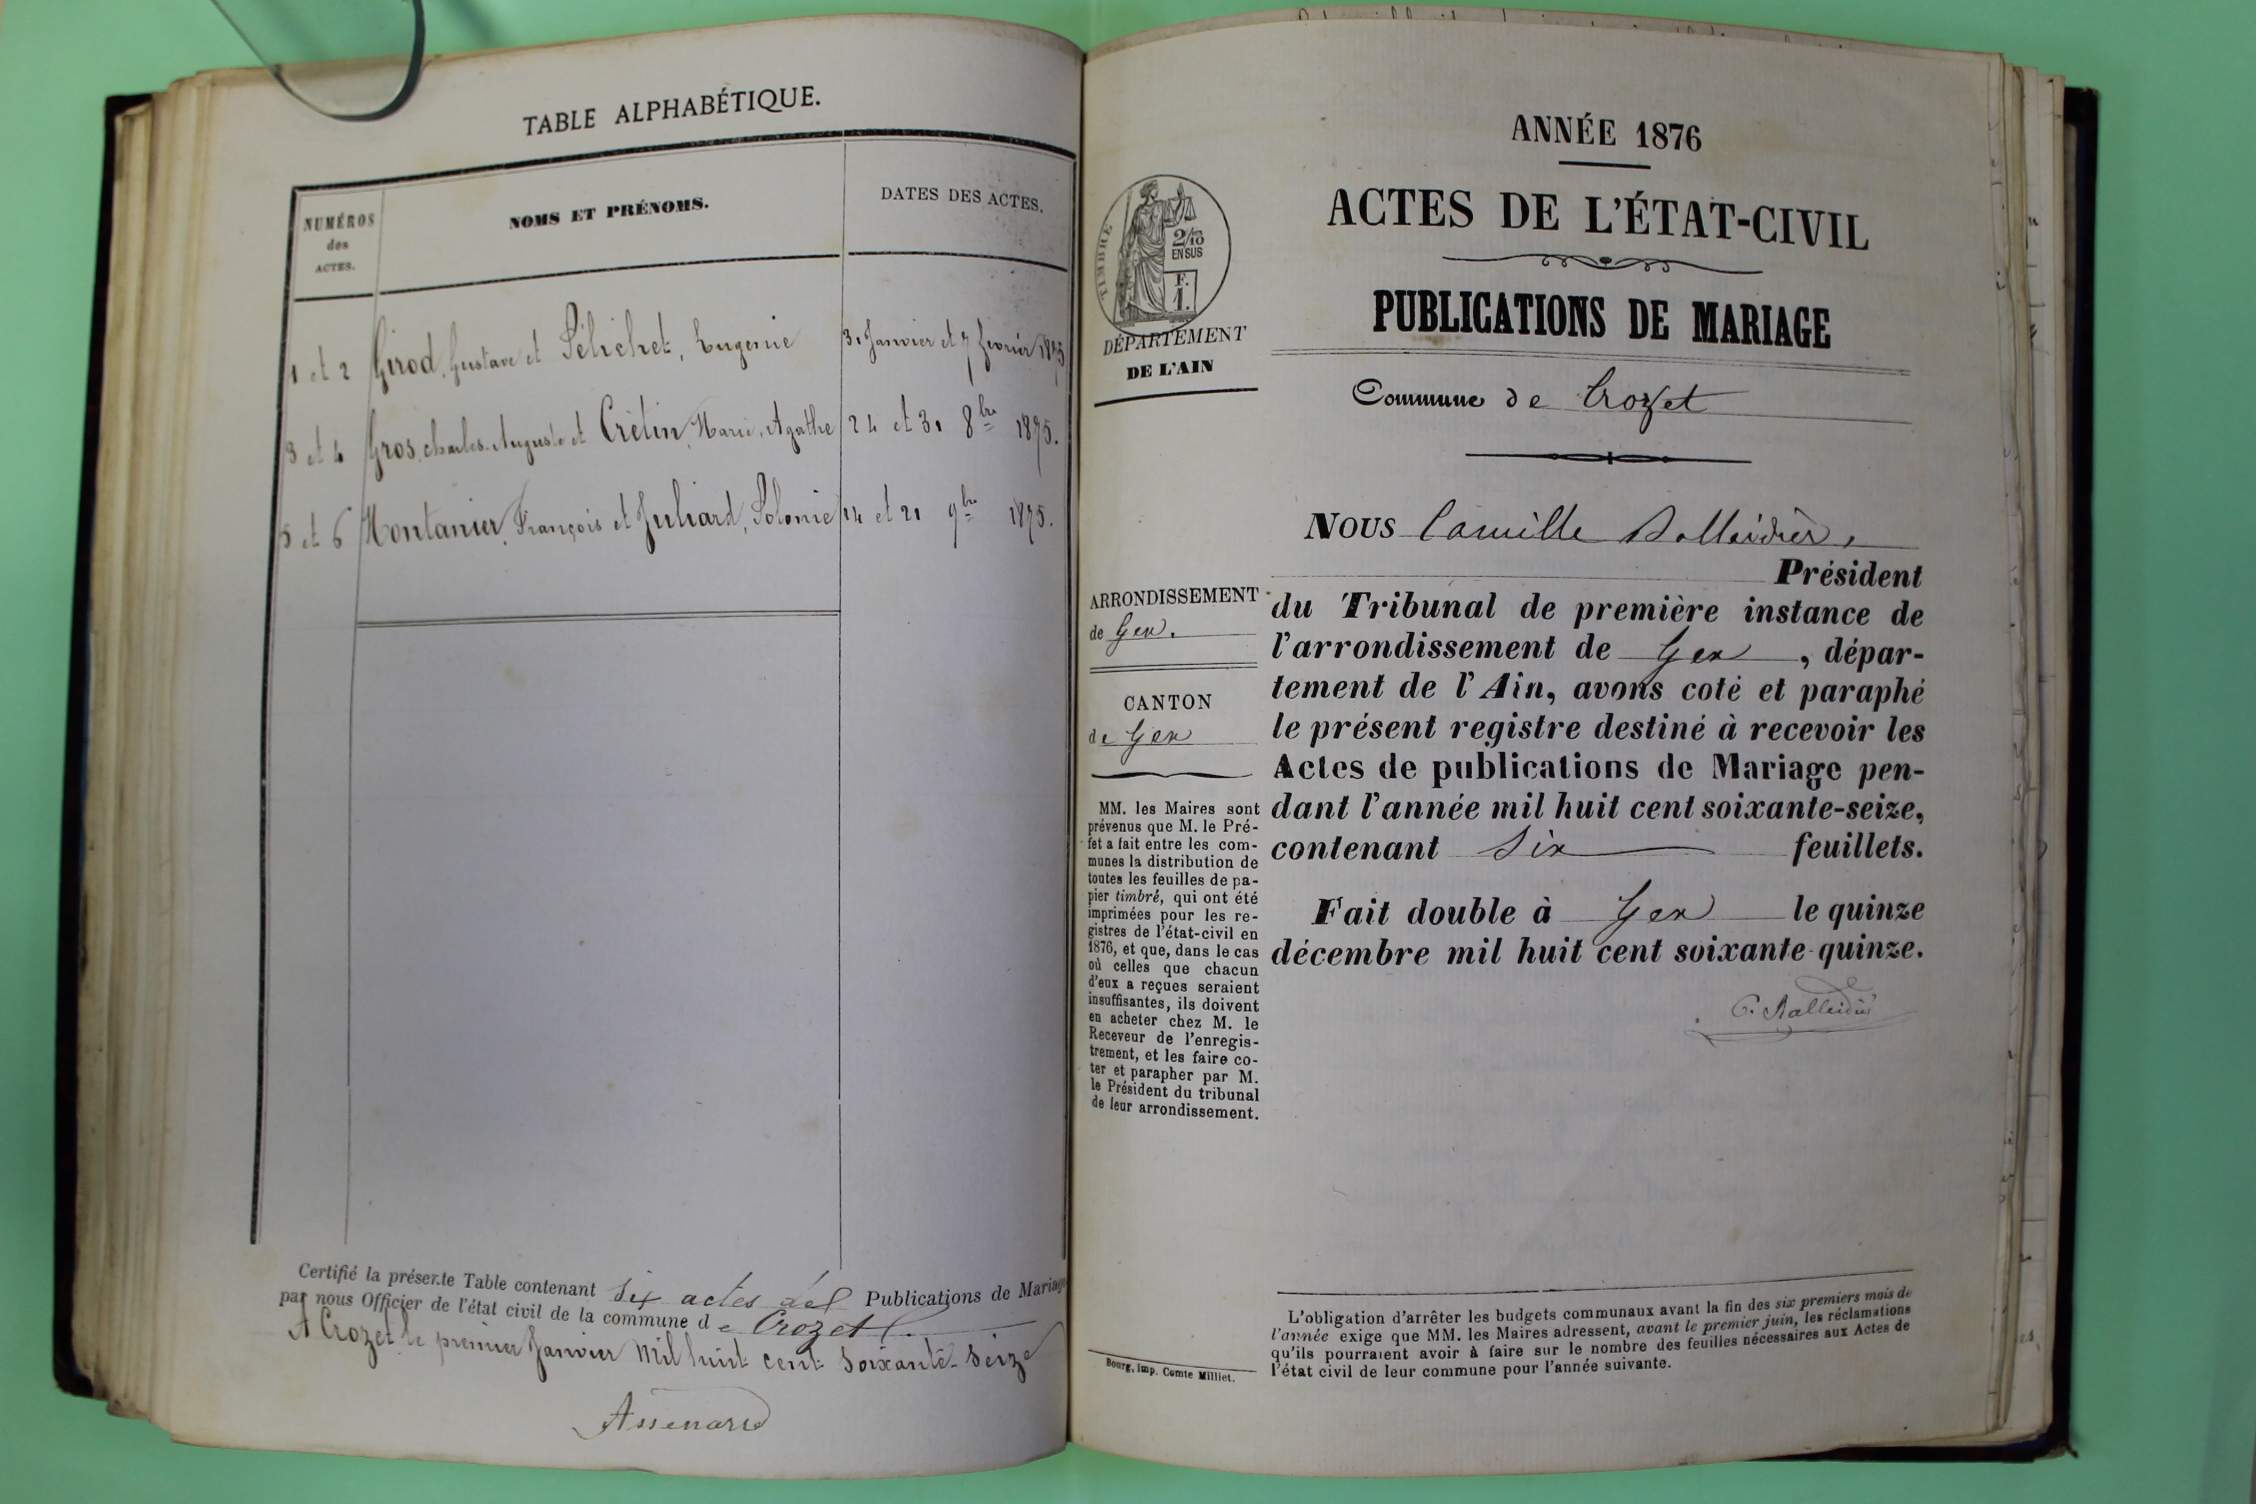 TABLE ALPHABÉTIQUE.
NUMÉROS
des
ACTES.
NOMS ET PRÉNOMS.
DATES DES ACTES.
1 et 2 Girod, Gustave et Pélichet, Eugenie 31 Janvier et 7 février 1875
3 et 4 Gros, charles-Auguste et Crétin, Marie, Agathe 24 et 31 8bre 1875.
5 et 6 Montanier, François et Juliard, Polonie 14 et 21 9bre 1875.
Certifié la présente Table contenant six actes de Publications de Mariage
par nous Officier de l'état civil de la commune de Crozet.
A Crozet le premier Janvier mil huit cent soixante-seize
Assenard
ANNÉE 1876
ACTES DE L'ÉTAT-CIVIL
PUBLICATIONS DE MARIAGE
Commune de Crozet
TIMBRE
2/10
EN SUS
F.
1.
DÉPARTEMENT
DE L'AIN
ARRONDISSEMENT
de Gex.
CANTON
de Gex
MM. les Maires sont
prévenus que M. le Pré-
fet a fait entre les com-
munes la distribution de
toutes les feuilles de pa-
pier timbré, qui ont été
imprimées pour les re-
gistres de l'état-civil en
1876, et que, dans le cas
où celles que chacun
d'eux a reçues seraient
insuffisantes, ils doivent
en acheter chez M. le
Receveur de l'enregis-
trement, et les faire co-
ter et parapher par M.
le Président du tribunal
de leur arrondissement.
Bourg, imp. Comte Milliet.
NOUS Camille
Président
du Tribunal de première instance de
l'arrondissement de Gex, dépar-
tement de l'Ain, avons coté et paraphé
le présent registre destiné à recevoir les
Actes de publications de Mariage pen-
dant l'année mil huit cent soixante-seize,
contenant Six feuillets.
Fait double à Gex le quinze
décembre mil huit cent soixante-quinze.
L'obligation d'arrêter les budgets communaux avant la fin des six premiers mois de
l'année exige que MM. les Maires adressent, avant le premier juin, les réclamations
qu'ils pourraient avoir à faire sur le nombre des feuilles nécessaires aux Actes de
l'état civil de leur commune pour l'année suivante.